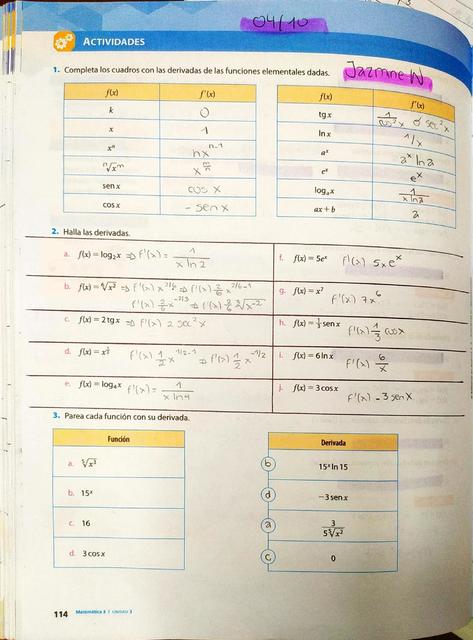 04/10
ACTIVIDADES
Jazmne N
1. Completa los cuadros con las derivadas de las funciones elementales dadas.
f(x) f'(x)
k 0
x 1
xⁿ nxⁿ⁻¹
ⁿ√xᵐ x^(m/n)
sen x cos x
cos x - sen x
f(x) f'(x)
tg x 1/cos²x o sec²x
ln x 1/x
aˣ aˣ ln a
eˣ eˣ
logₐx 1/(x ln a)
ax + b a
2. Halla las derivadas.
a. f(x) = log₂x ⇒ f'(x) = 1/(x ln 2)
b. f(x) = ⁶√x² ⇒ f'(x) x^(2/6) ⇒ f'(x) 2/6 x^(2/6-1)
f'(x) 2/6 x^(-2/3) ⇒ f'(x) 2/6 ³√x⁻²
c. f(x) = 2 tg x ⇒ f'(x) 2 sec²x
d. f(x) = x^(1/2) f'(x) 1/2 x^(1/2-1) ⇒ f'(x) 1/2 x^(-1/2)
e. f(x) = log₄x f'(x) = 1/(x ln 4)
f. f(x) = 5eˣ f'(x) 5xeˣ
g. f(x) = x⁷ f'(x) 7x⁶
h. f(x) = 1/3 sen x f'(x) 1/3 cos x
i. f(x) = 6 ln x f'(x) 6/x
j. f(x) = 3 cos x
f'(x) - 3 sen x
3. Parea cada función con su derivada.
Función
a. ⁵√x³
b. 15ˣ
c. 16
d. 3 cos x
Derivada
b 15ˣ ln 15
d −3 sen x
a 3/(5 ⁵√x²)
c 0
114 Matemática 5 | UNIDAD 3